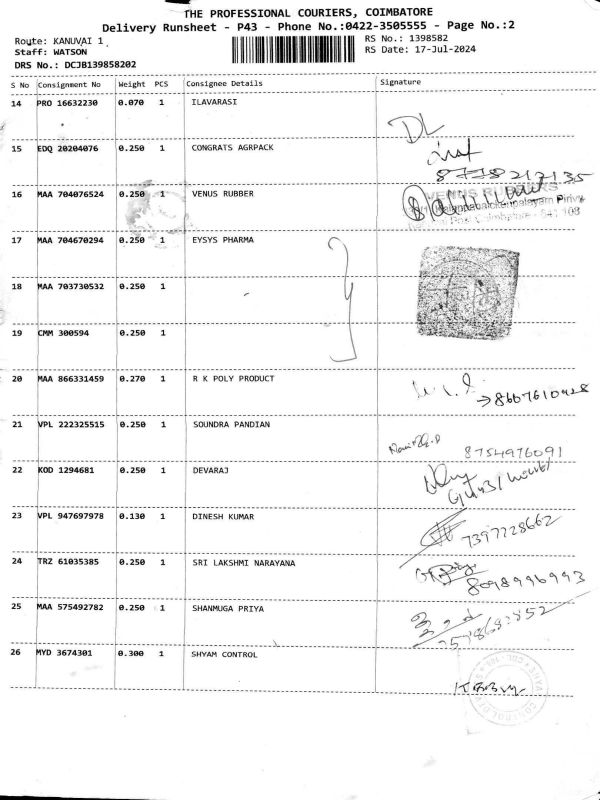 THE PROFESSIONAL COURIERS, COIMBATORE
Delivery Runsheet - P43 - Phone No.:0422-3505555 - Page No.:2
Route: KANUVAI 1
RS No.: 1398582
Staff: WATSON
RS Date: 17-Jul-2024
DRS No.: DCJB139858202
S No Consignment No Weight PCS Consignee Details Signature
14 PRO 16632230 0.070 1 ILAVARASI
DL
15 EDQ 20204076 0.250 1 CONGRATS AGRPACK
8778217135
16 MAA 704076524 0.250 1 VENUS RUBBER
VENUS RUBBERS
17 MAA 704670294 0.250 1 EYSYS PHARMA
18 MAA 703730532 0.250 1
19 CMM 300594 0.250 1
20 MAA 866331459 0.270 1 R K POLY PRODUCT
→8607610928
21 VPL 222325515 0.250 1 SOUNDRA PANDIAN
8754976091
22 KOD 1294681 0.250 1 DEVARAJ
23 VPL 947697978 0.130 1 DINESH KUMAR
7397728662
24 TRZ 61035385 0.250 1 SRI LAKSHMI NARAYANA
8098996993
25 MAA 575492782 0.250 1 SHANMUGA PRIYA
26 MYD 3674301 0.300 1 SHYAM CONTROL